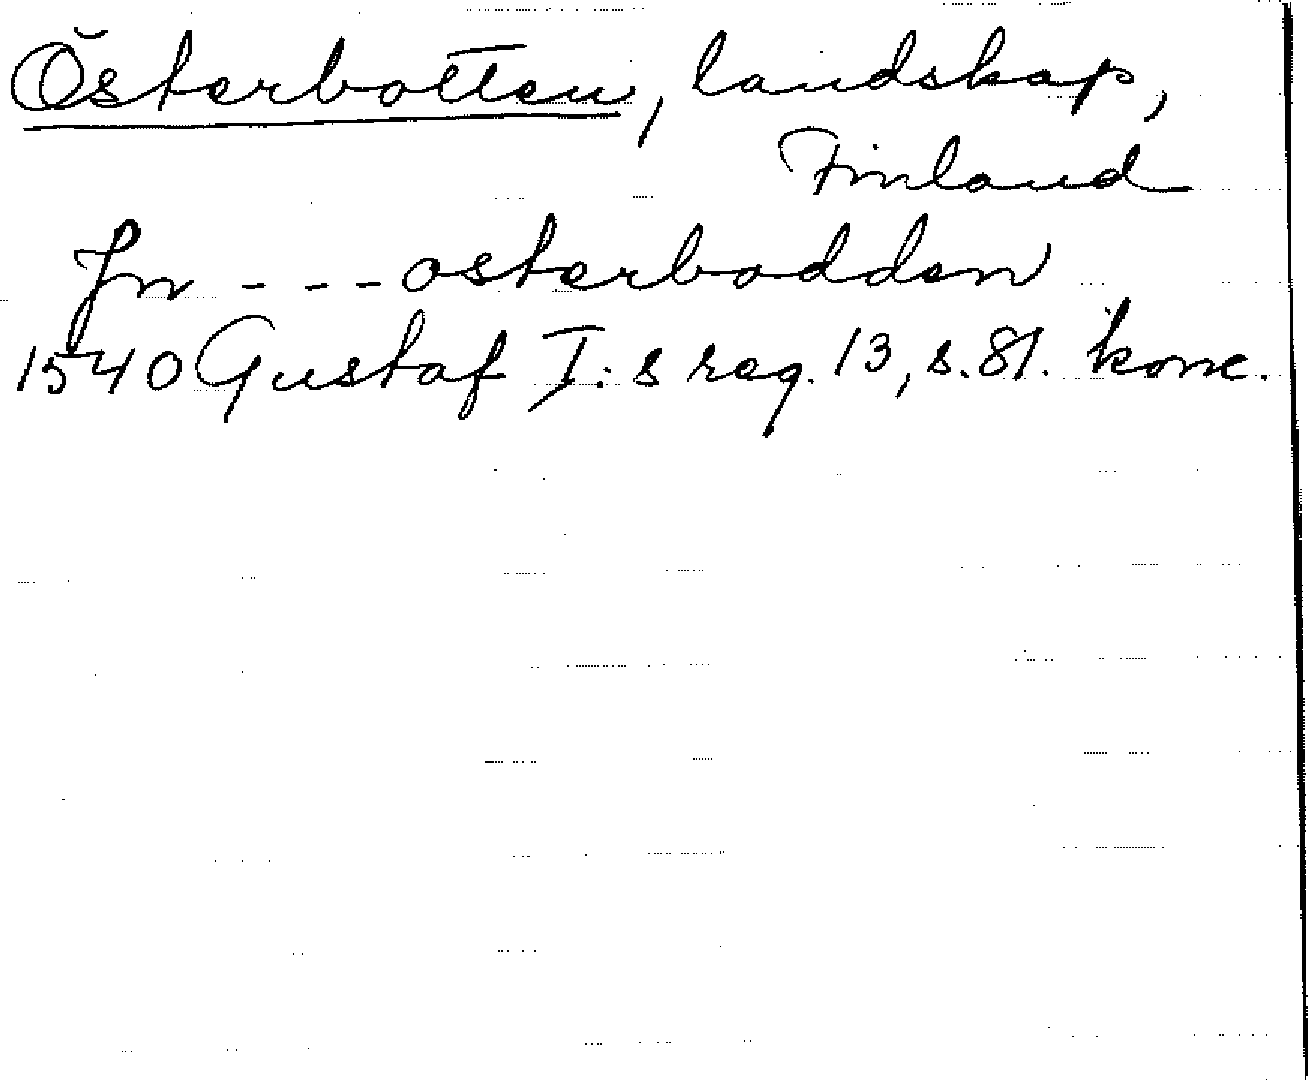 Österbotten, landskap,
Finland
Jn --- osterbodden
1540 Gustaf I:s reg. 13, s.81. konc.